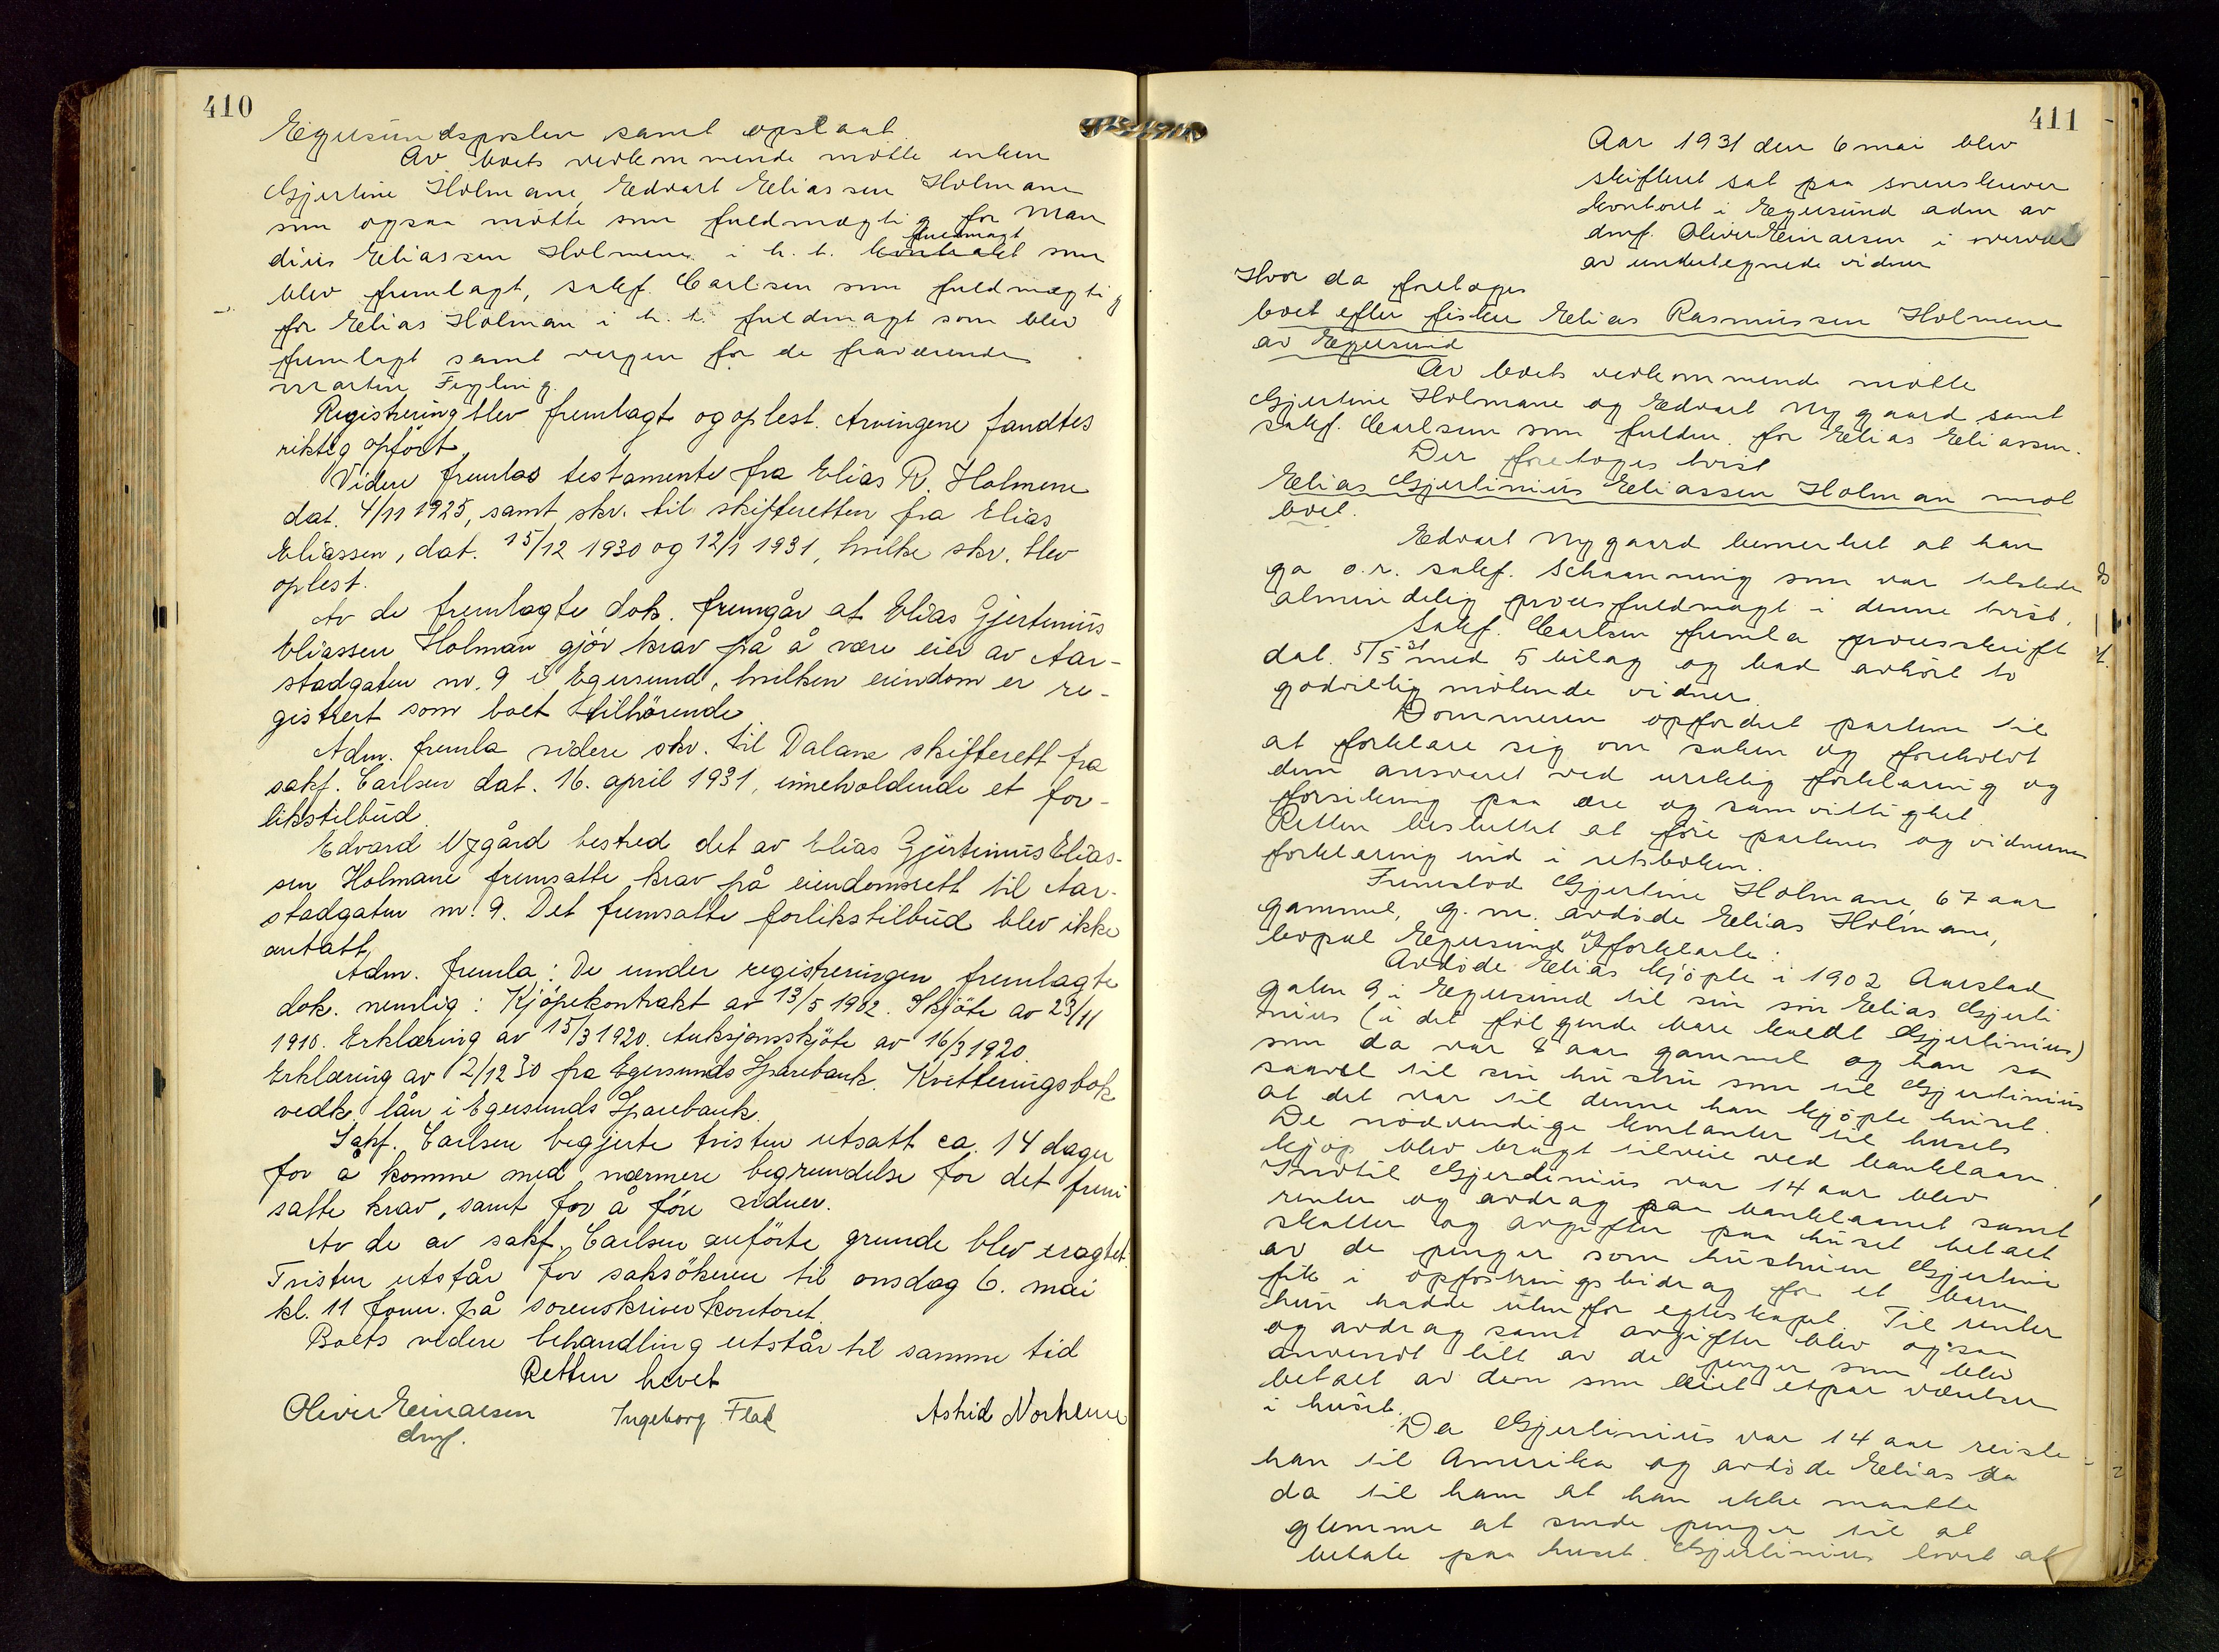 410
Egersundsposten samt opslaat
Av boets vedkommende møtte enken
Gjertine Holmane, Edvart Eliassen Holmane
som ogsaa møtte som fuldmægtig for Man
dius Eliassen Holmene i h. t. kontrakt fuldmagt som
blev fremlagt, sakf. Carlsen som fuldmægtig
for Elias Holman i h. t. fuldmagt som blev
fremlagt samt vergen for de fraværende
Martin Fegling.
Registrering blev fremlagt og oplest. Arvingene fandtes
riktig opført.
Videre fremlaa testamente fra Elias R. Holmene
dat. 4/11 1925, samt skr. til skifteretten fra Elias
Eliassen, dat. 15/12 1930 og 12/1 1931, hvilke skr. blev
oplest.
Av de fremlagte dok. fremgår at Elias Gjertinius
Eliassen Holman gjør krav på å være eier av Aar-
stadgaten nr. 9 i Egersund, hvilken eiendom er re-
gistrert som boet tilhørende.
Adm. fremla videre skr. til Dalane skifterett fra
sakf. Carlsen dat. 16. april 1931, inneholdende et for-
likstilbud.
Edvard Nygård bestred det av Elias Gjertinius Elias-
sen Holmane fremsatte krav på eiendomsrett til Aar-
stadgaten nr. 9. Det fremsatte forlikstilbud blev ikke
antatt.
Adm. fremla: De under registreringen fremlagte
dok. nemlig: Kjøpekontrakt av 13/5 1902. Skjøte av 23/11
1910. Erklæring av 15/3 1920. Auksjonsskjøte av 16/3 1920.
Erklæring av 2/12 30 fra Egersunds Sparebank. Kvitteringsbok
vedk. lån i Egersunds Sparebank.
Sakf. Carlsen begjerte tvisten utsatt ca. 14 dager
for å komme med nærmere begrundelse for det frem
satte krav, samt for å føre vidner.
Av de av sakf. Carlsen anførte grunde blev eragtet:
Tvisten utstår for saksøkeren til onsdag 6. mai
kl. 11 form. på sorenskriverkontoret.
Boets videre behandling utstår til samme tid
Retten hevet
Oliver Einarsen Ingeborg Flak Astrid Norheim
dmf.
411
Aar 1931 den 6 mai blev
skifteret sat paa sorenskriver
kontoret i Egersund adm av
dmf. Oliver Einarsen i overvær
av undertegnede vidner
Hvor da foretoges
boet efter fisker Elias Rasmussen Holmene
av Egersund
Av boets vedkommende møtte
Gjertine Holmane og Edvart Nygaard samt
sakf. Carlsen som fuldm. for Elias Eliassen.
Der foretoges tvist
Elias Gjertinius Eliassen Holman mot
boet.
Edvart Nygaard bemerket at han
ga o.r. sakf. Schanning som var tilstede
almindelig procesfuldmagt i denne tvist.
Sakf. Carlsen fremla processkrift
dat. 5/5 31 med 5 bilag og bad avhørt to
godvillig møtende vidner.
Dommeren opfordret partene til
at forklare sig om saken og foreholdt
dem ansvaret ved uriktig forklaring og
forsikring paa ære og samvittighet
Retten besluttet at føre partenes og vidnernes
forklaring ind i retsboken.
Fremstod Gjertine Holmane 67 aar
gammel, g. m. avdøde Elias Holmane,
bopæl Egersund og forklarte:
Avdøde Elias kjøpte i 1902 Aarstad
gaten 9 i Egersund til sin søn Elias Gjerti
nius (i det følgende bare kaldt Gjertinius)
som da var 8 aar gammel og han sa
saavel til sin hustru som til Gjertinius
at det var til denne han kjøpte huset.
De nødvendige kontanter til husets
kjøp blev bragt tilveie ved banklaan.
Indtil Gjerdinius var 14 aar blev
renter og avdrag paa banklaanet samt
skatter og avgifter paa huset betalt
av de penger som hustruen Gjertine
fik i opfostringsbidrag for et barn
hun hadde utenfor egteskapet. Til renter
og avdrag samt avgifter blev ogsaa
anvendt litt av de penger som blev
betalt av dem som leiet et par værelser
i huset.
Da Gjertinius var 14 aar reiste
han til Amerika og avdøde Elias sa
da til ham at han ikke maatte
glemme at sende penger til at
betale paa huset. Gjertinius lovet at